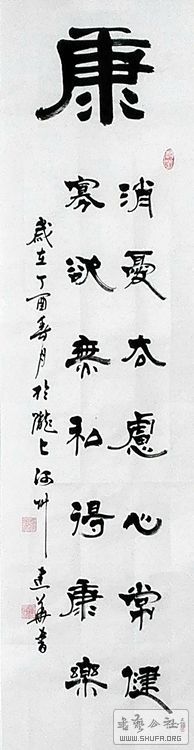 康
消憂去慮心常健
寡欲無私得康樂
歲在丁酉春月於隴上河州建華書
書法公社
WWW.SHUFA.ORG